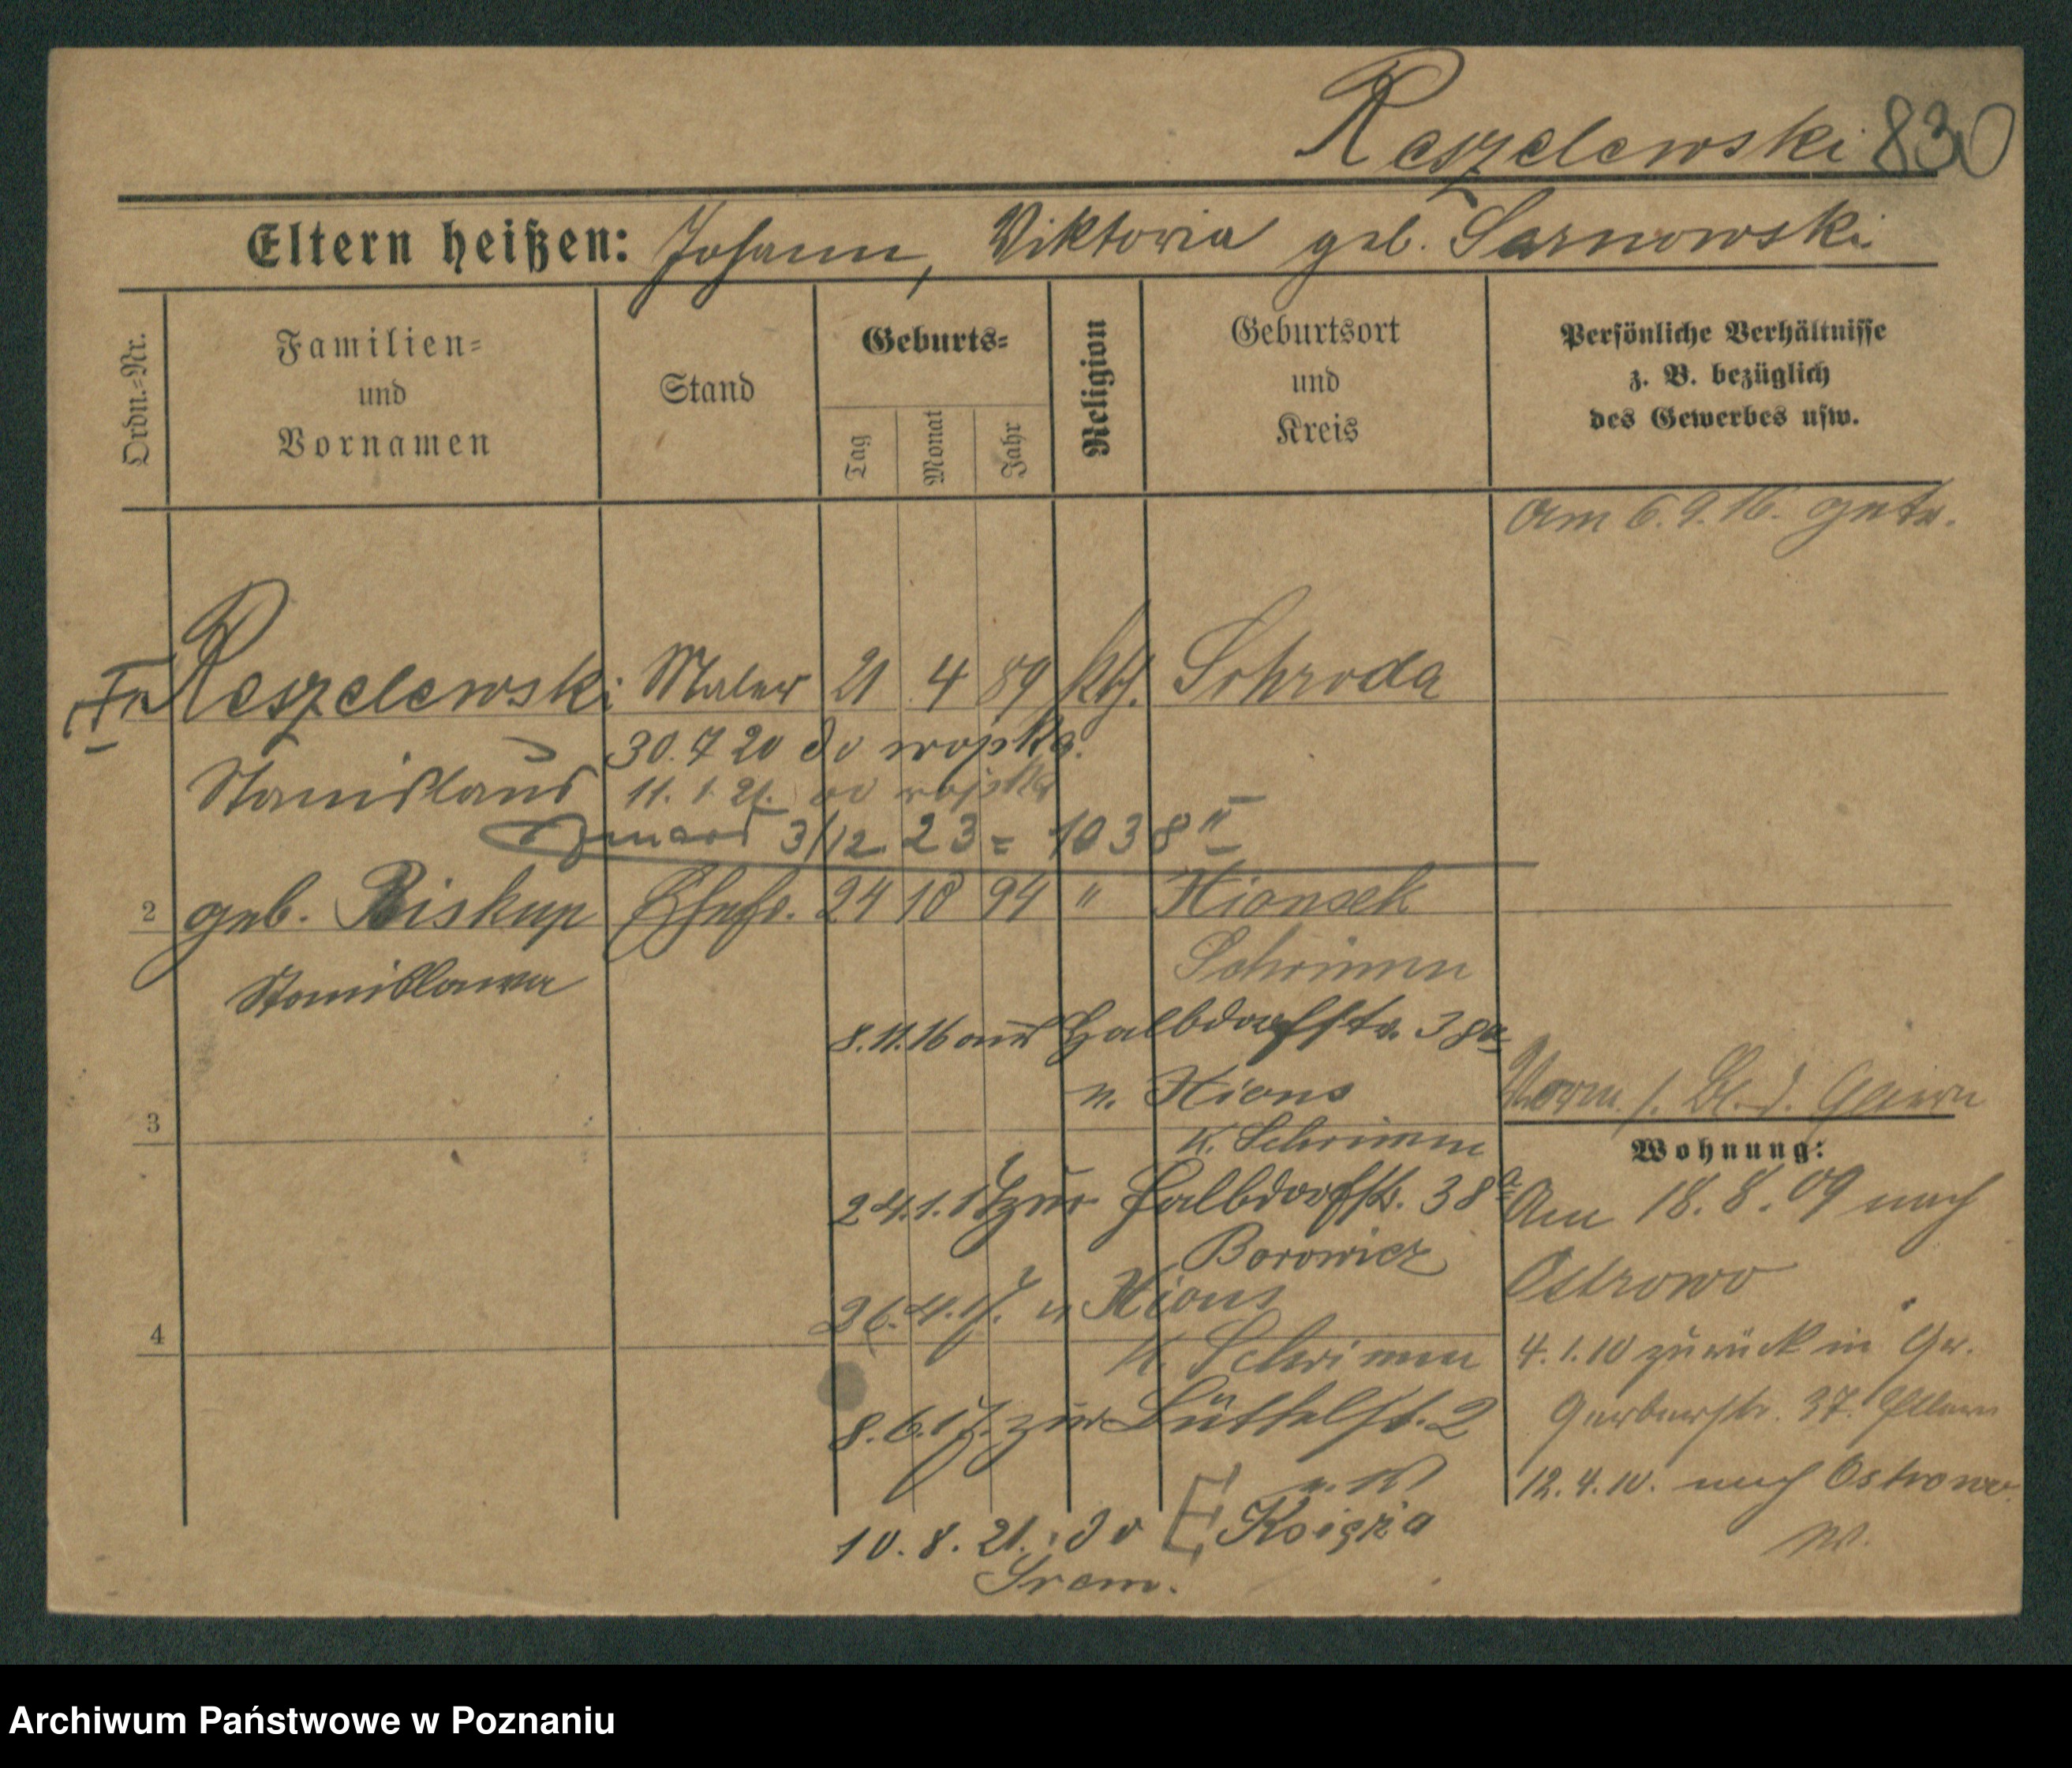 Reszelewski 830
Eltern heißen: Johann, Viktoria geb. Sarnowski
Ordn.-Nr.
Familien-
und
Vornamen
Stand
Geburts-
Tag
Monat
Jahr
Religion
Geburtsort
und
Kreis
Persönliche Verhältnisse
z. B. bezüglich
des Gewerbes usw.
Am 6.9.16. getr.
Reszelewski Maler 21 4 89 kth. Schroda
30.7 20 do wojska.
Stanislaus 11.1.21. od wojska
3/12 23 = 1038 II
2 geb. Biskup Ehefr. 24 10 94 " Xionsek
Stanislawa
Schrimm
8.11.16 aus Halbdorfstr. 38a
n. Xions
3
K. Schrimm
24.1.17 zur Halbdorfstr. 38a
Borowicz
26.4.17. n Xions
4
K. Schrimm
8.6.17. zur Büttelst. 2
10.8.21. do Książa
Śrem.
Wohnung:
Am 18.8.09 nach
Ostrowo
4.1.10 zurück in Gr.
Gerberstr. 37. Eltern
12.4.10. nach Ostrowo.
W.
Archiwum Państwowe w Poznaniu